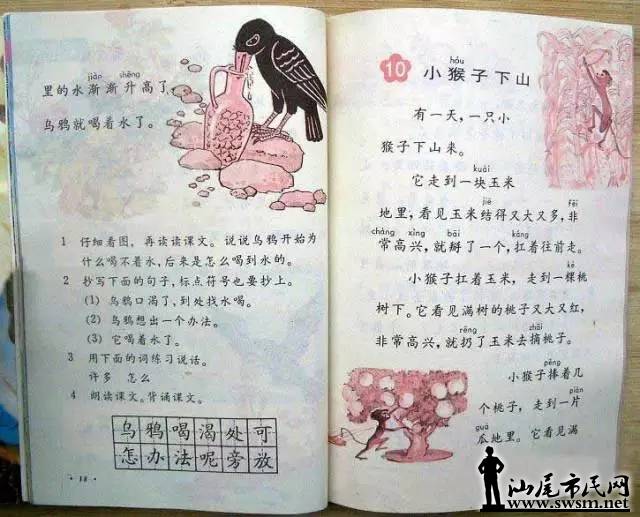 jiàn shēng
里的水渐渐升高了，
乌鸦就喝着水了。
1 仔细看图，再读读课文。说说乌鸦开始为
什么喝不着水，后来是怎么喝到水的。
2 抄写下面的句子，标点符号也要抄上。
(1) 乌鸦口渴了，到处找水喝。
(2) 乌鸦想出一个办法。
(3) 它喝着水了。
3 用下面的词练习说话。
许多 怎么
4 朗读课文。背诵课文。
乌鸦喝渴处可
怎办法呢旁放
·18·
hóu
10 小猴子下山
有一天，一只小
猴子下山来。
kuài
它走到一块玉米
jiē fēi
地里，看见玉米结得又大又多，非
cháng xìng bāi káng
常高兴，就掰了一个，扛着往前走。
小猴子扛着玉米，走到一棵桃
树下。它看见满树的桃子又大又红，
rēng zhāi
非常高兴，就扔了玉米去摘桃子。
pěng
小猴子捧着几
piàn
个桃子，走到一片
guā
瓜地里。它看见满
汕尾市民网
www.swsm.net